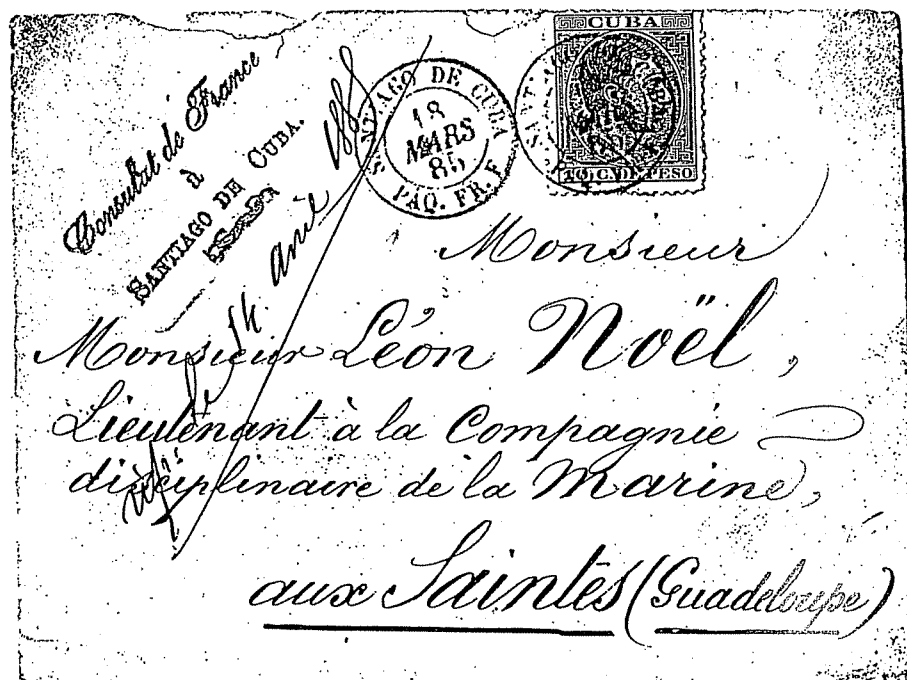 Consulat de France
à
SANTIAGO DE CUBA.
SANTIAGO DE CUBA
18
MARS
85
PAQ. FR. F
CUBA
10 C. DE PESO
Monsieur
Monsieur Léon Noël,
Lieutenant à la Compagnie
disciplinaire de la Marine,
aux Saintes (Guadeloupe)
le 14 avril 188